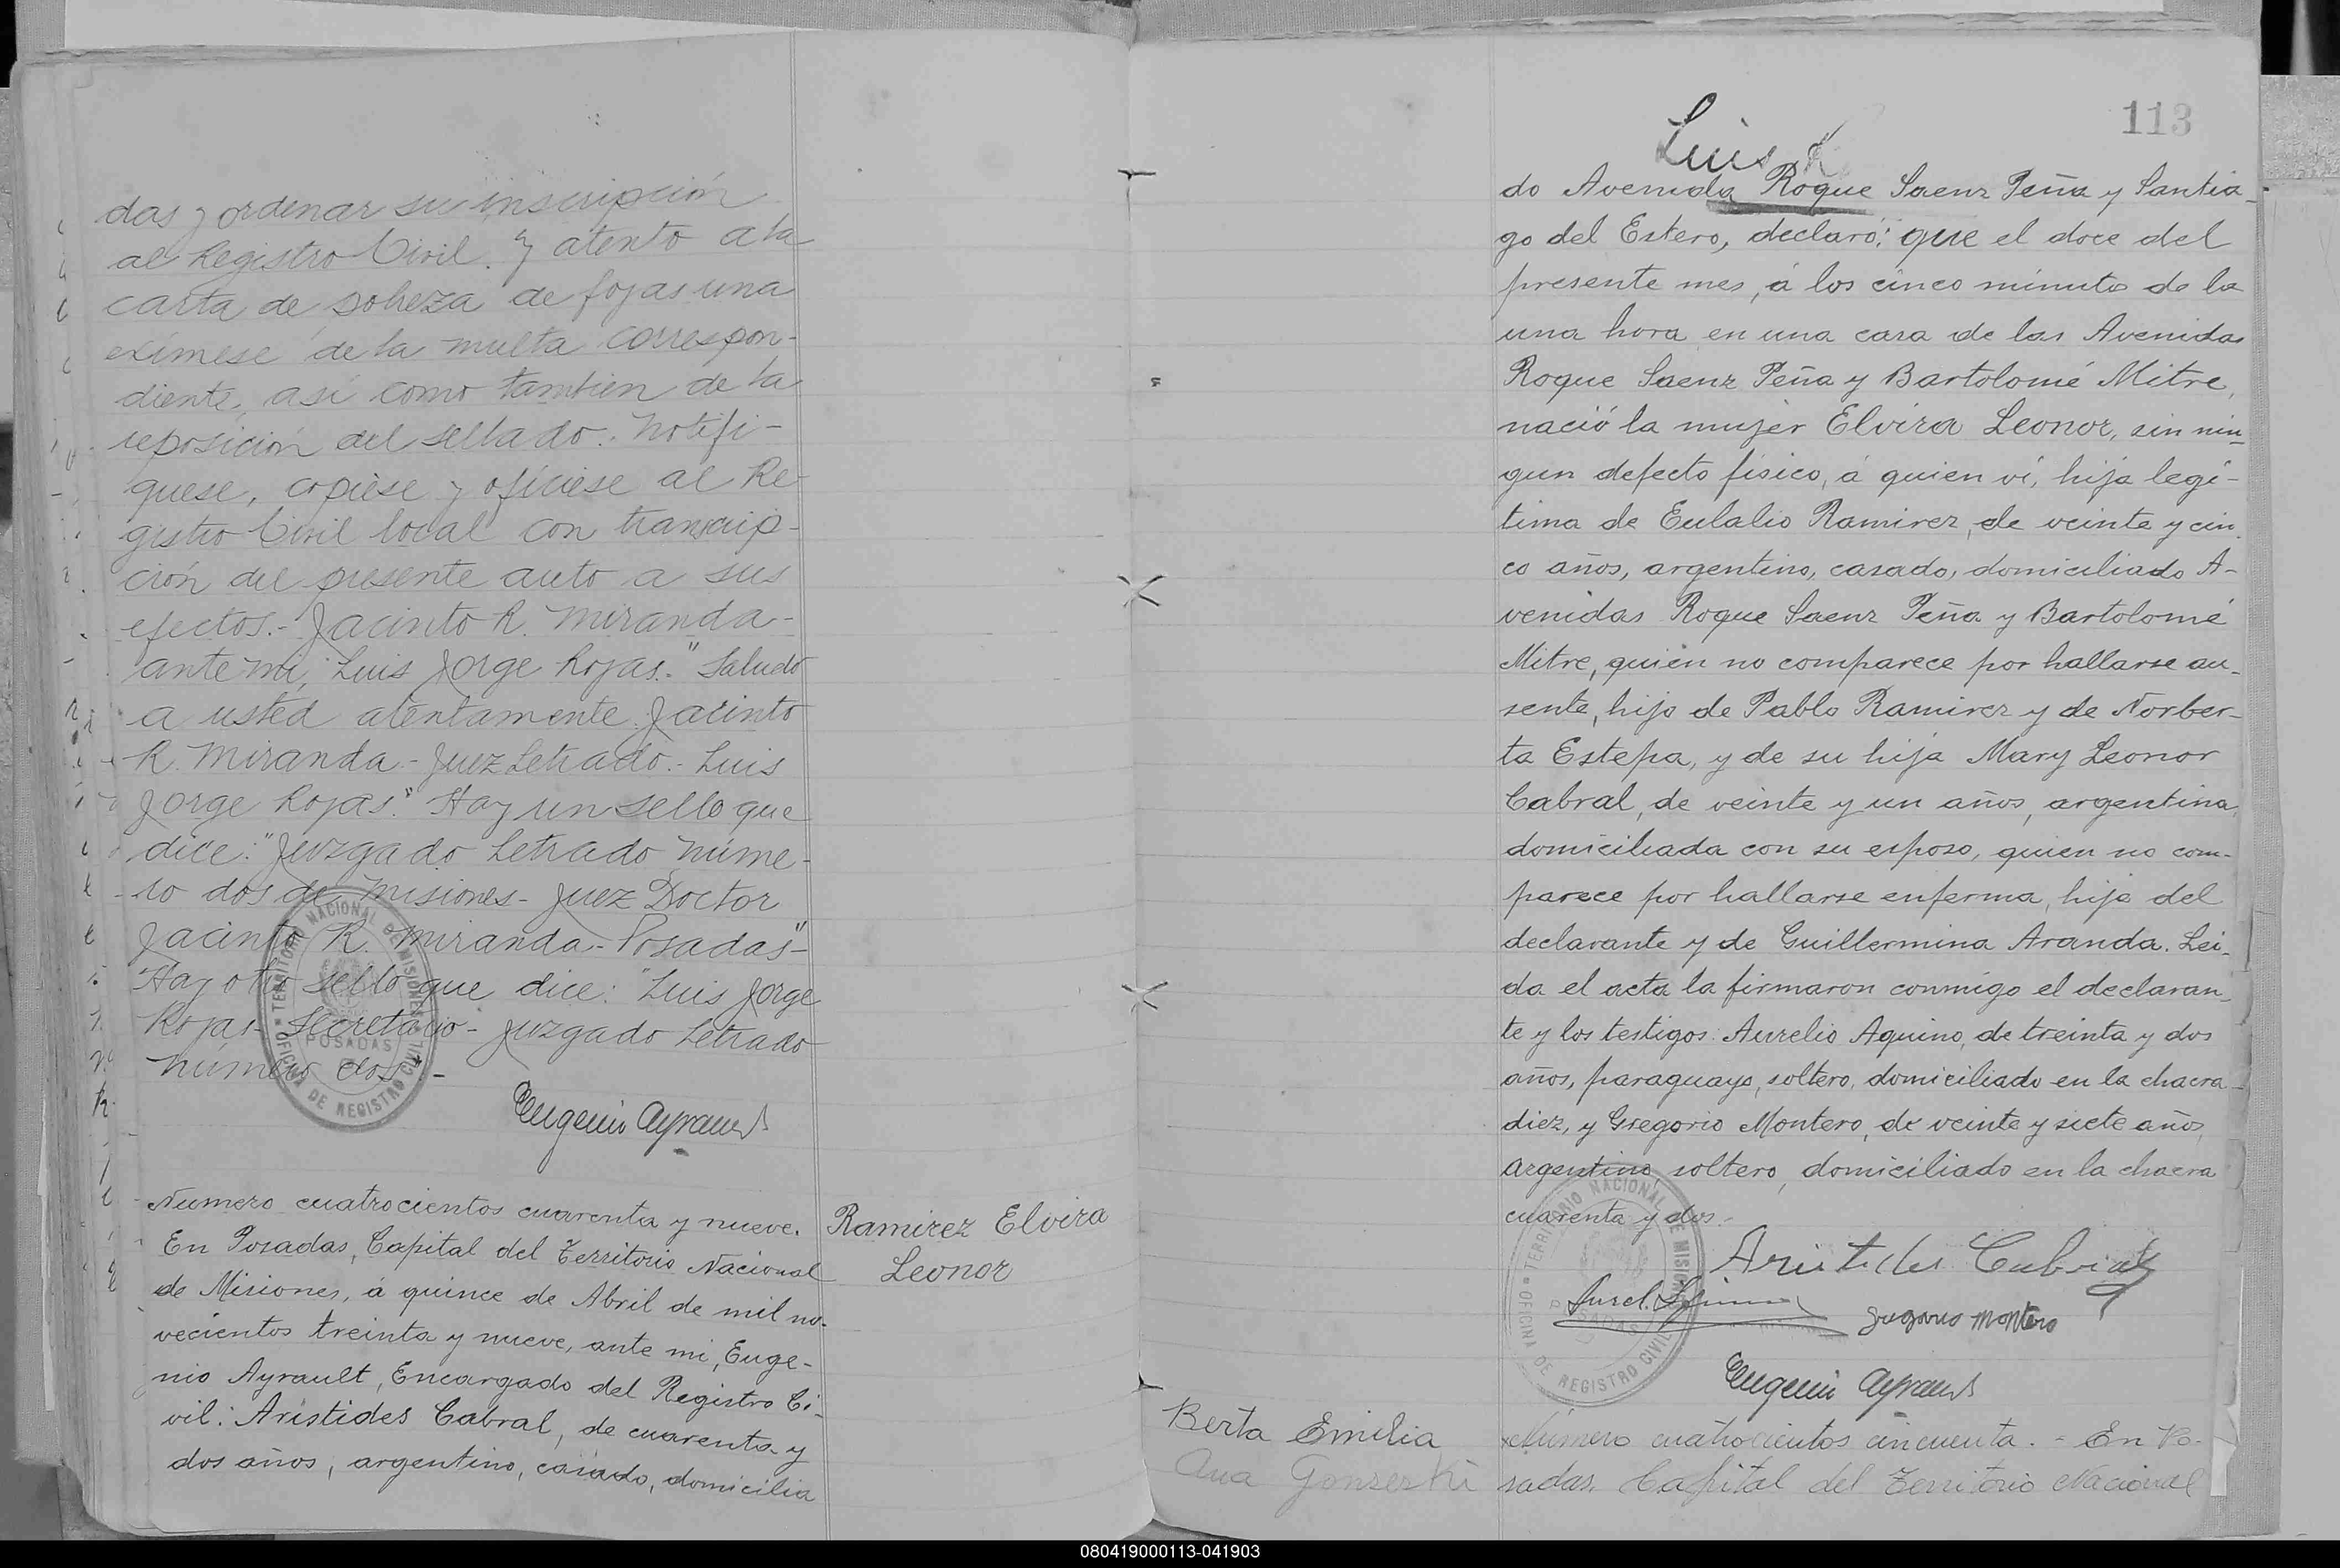 das y ordenar su inscripción
al Registro Civil. Y atento a la
carta de pobreza de fojas una
exímese de la multa correspon-
diente, así como tambien de la
reposición del sellado. Notifi-
quese, cópiese y ofíciese al Re-
gistro Civil local con transcrip-
ción del presente auto a sus
efectos.- Jacinto R. Miranda-
ante mi, Luis Jorge Rojas." Saludo
a usted atentamente. Jacinto
R. Miranda - Juez Letrado.- Luis
Jorge Rojas." Hay un sello que
dice: "Juzgado Letrado núme-
ro dos de Misiones - Juez Doctor
Jacinto R. Miranda - Posadas"-
Hay otro sello que dice: "Luis Jorge
Rojas - Secretario - Juzgado Letrado
número dos".-
TERRITORIO NACIONAL DE MISIONES
POSADAS
OFICINA DE REGISTRO CIVIL
Eugenio Ayrault
Numero cuatrocientos cuarenta y nueve.
En Posadas, Capital del Territorio Nacional
de Misiones, á quince de Abril de mil no-
vecientos treinta y nueve, ante mi, Euge-
nio Ayrault, Encargado del Registro Ci-
vil: Arístides Cabral, de cuarenta y
dos años, argentino, casado, domicilia
Ramirez Elvira
Leonor
113
Luis
do Avenida Roque Saenz Peña y Santia-
go del Estero, declaró: que el doce del
presente mes, á los cinco minutos de la
una hora en una casa de las Avenidas
Roque Saenz Peña y Bartolomé Mitre,
nació la mujer Elvira Leonor, sin nin-
gun defecto físico, á quien ví, hija legí-
tima de Eulalio Ramirez, de veinte y cin
co años, argentino, casado, domiciliado A-
venidas Roque Saenz Peña y Bartolomé
Mitre, quien no comparece por hallarse au-
sente, hijo de Pablo Ramirez y de Norber-
ta Estepa, y de su hija Mary Leonor
Cabral, de veinte y un años, argentina,
domiciliada con su esposo, quien no com-
parece por hallarse enferma, hija del
declarante y de Guillermina Aranda. Lei-
da el acta la firmaron conmigo el declaran-
te y los testigos: Aurelio Aquino, de treinta y dos
años, paraguayo, soltero, domiciliado en la chacra
diez, y Gregorio Montero, de veinte y siete años,
argentino, soltero, domiciliado en la chacra
cuarenta y dos.-
Aristides Cabral
Montero
TERRITORIO NACIONAL DE MISIONES
POSADAS
OFICINA DE REGISTRO CIVIL
Eugenio Ayrault
Berta Emilia
Ana Gonserki
Número cuatrocientos cincuenta.- En Po-
sadas, Capital del Territorio Nacional
080419000113-041903